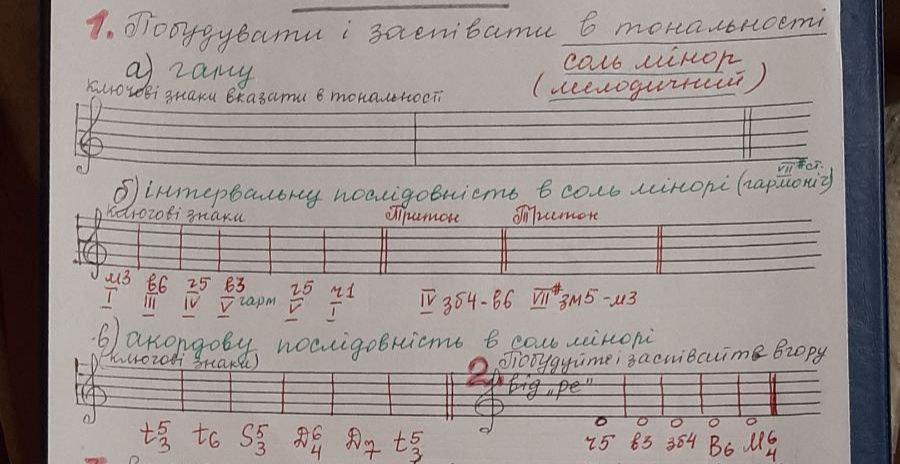 1. Побудувати і заспівати в тональності
а) гаму соль мінор
ключові знаки вказати в тональності (мелодичний)
б) інтервальну послідовність в соль мінорі (гармоніч) VII# ст.
Ключові знаки Тритон Тритон
м3 в6 ч5 в3 ч5 ч1 IV зб4-в6 VII# зм5-м3
I III IV V гарм V I
в) акордову послідовність в соль мінорі
(ключові знаки) 2. Побудуйте і заспівайте вгору
від „ре"
t5/3 t6 S5/3 Д6/4 Д7 t5/3 ч5 в3 зб4 В6 М6/4